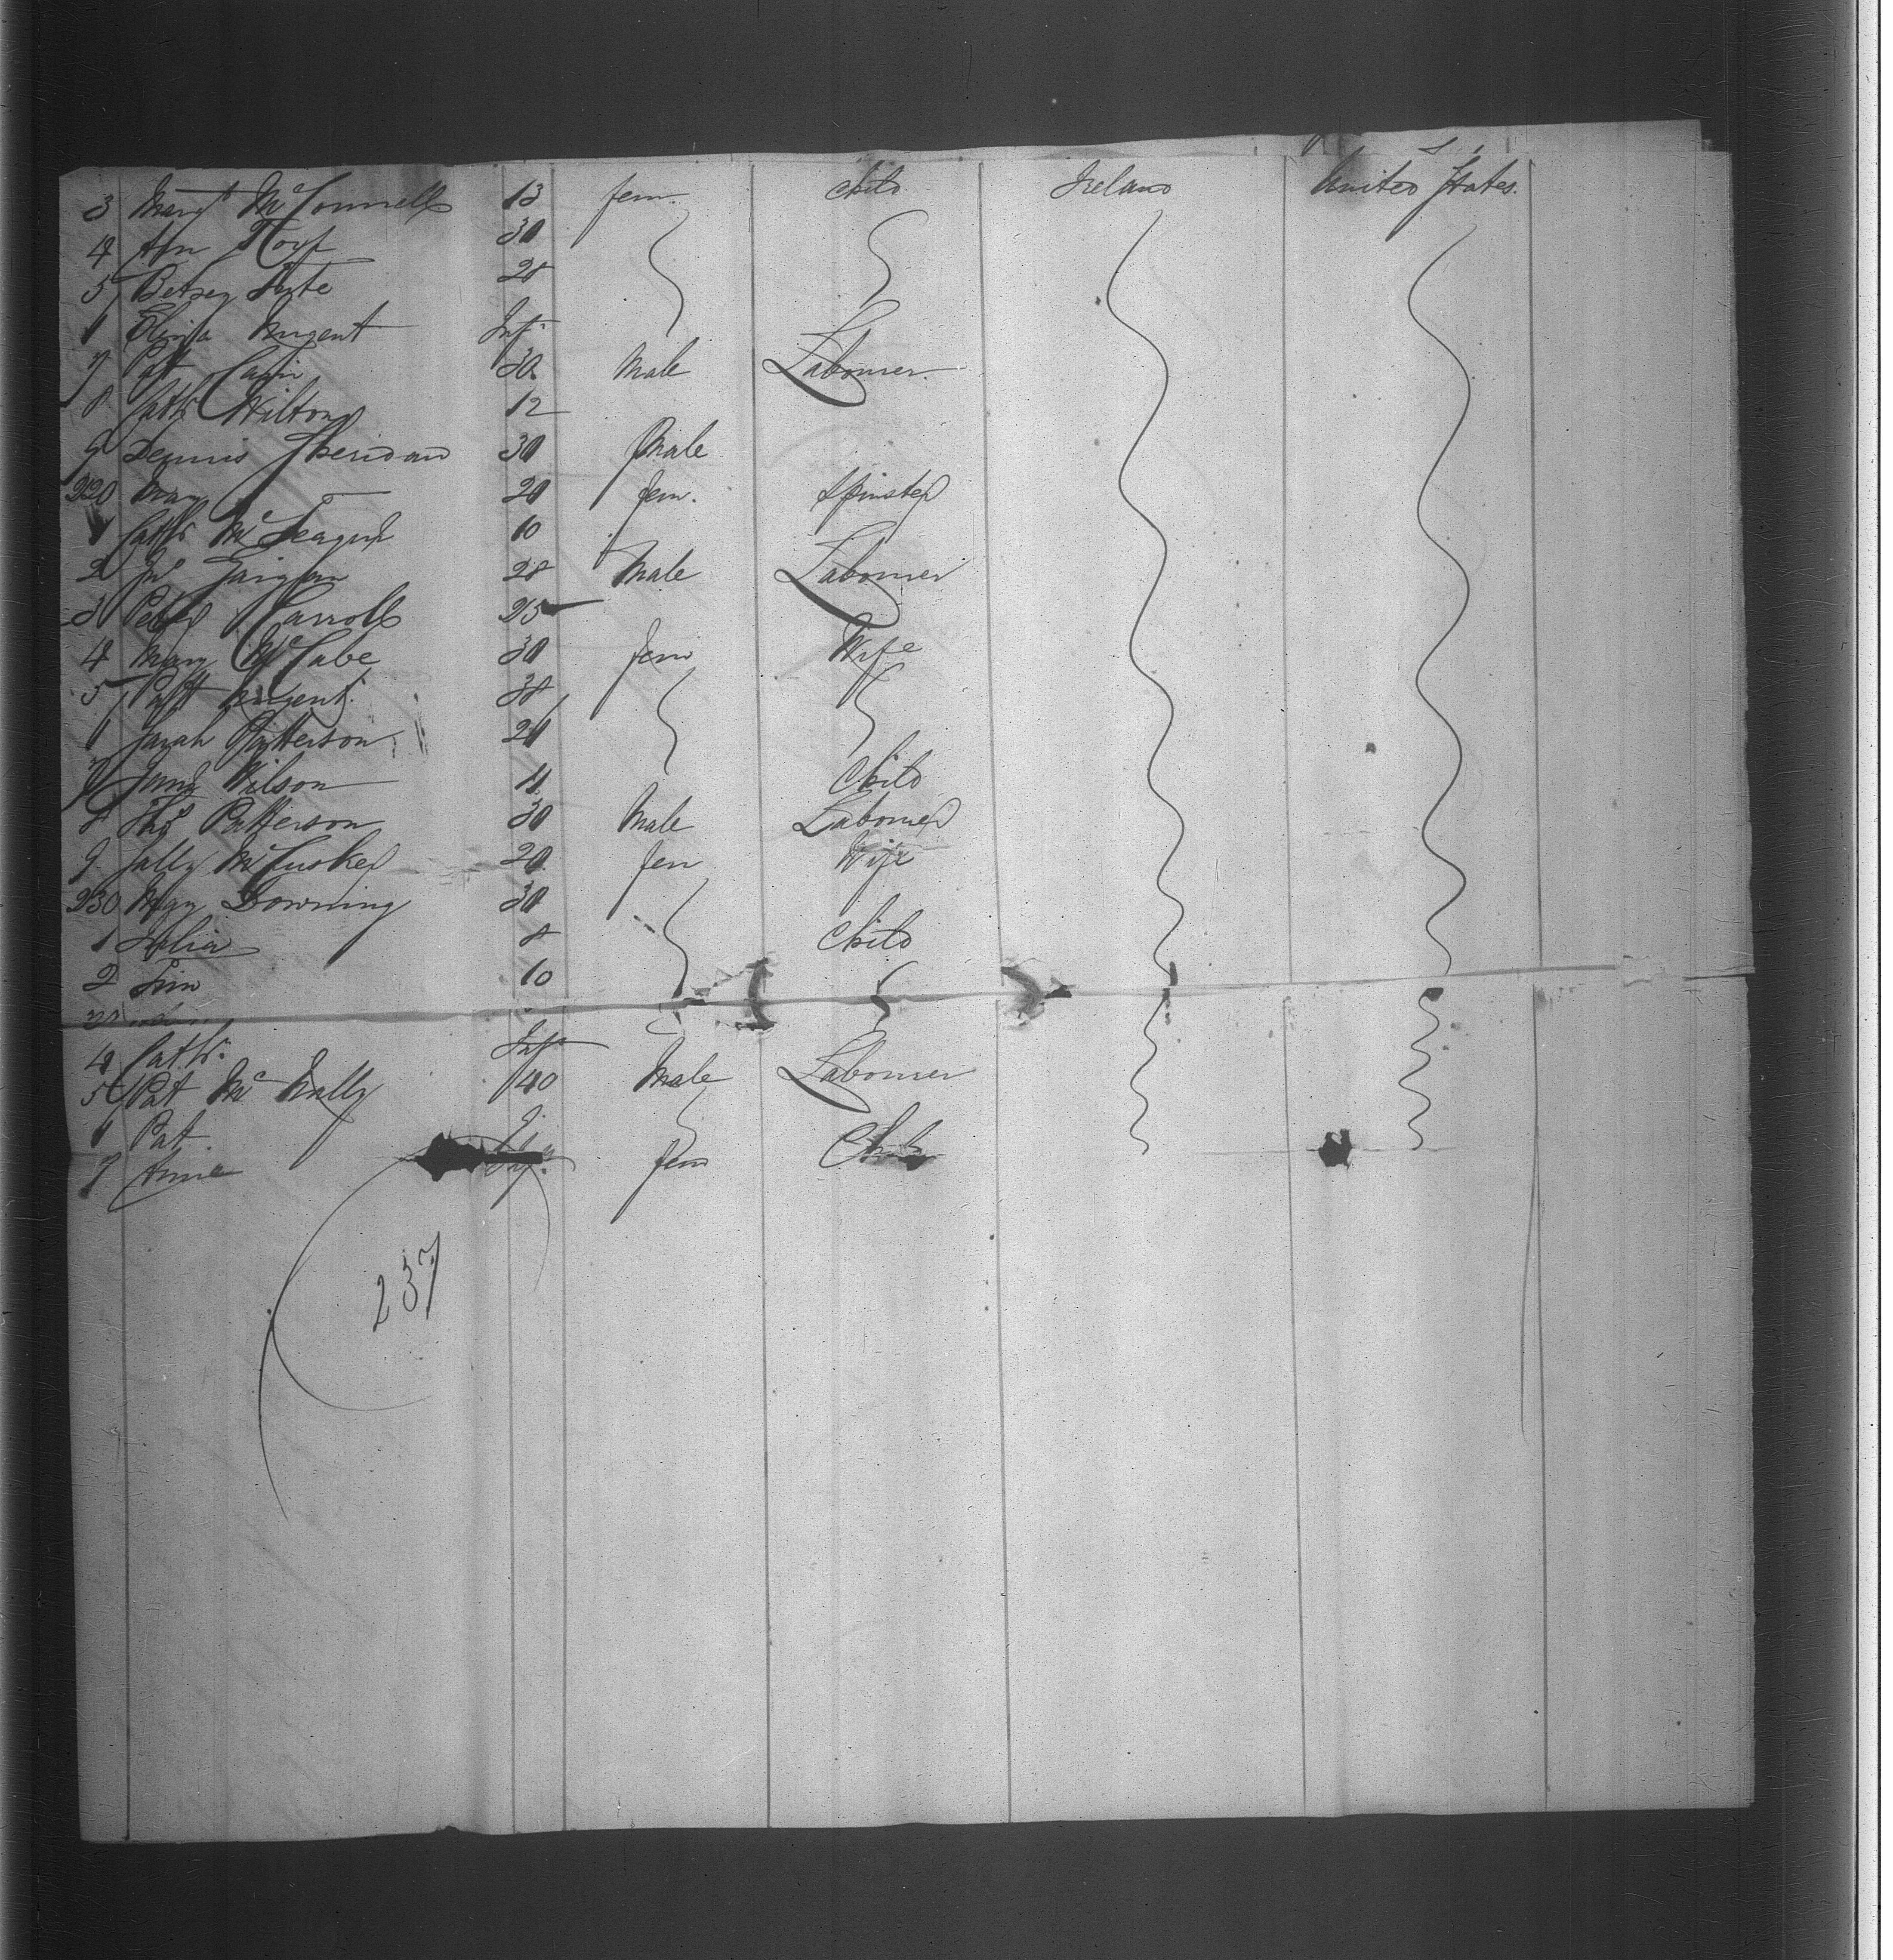 3 Margt McConnell 13 fem. Child Ireland United States.
4 Ann 30
5 Betsey 28
6 Eliza Nugent Inf.
7 Pat 30. Male Labourer
8 Cath. Wilton 12
9 Dennis Sheridan 30 Male
220 Mary 20 fem. Spinster
1 Cath. McTeague 10
2 Jno 28 Male Labourer
3 Peter Carroll 25
4 Mary McCabe 30 fem Wife
5 Patt Nugent 38
6 Sarah Patterson 20
7 Wilson 11 Child
8 Thos Patterson 30 Male Labourer
9 Sally McCusker 20 fem Wife
230 May Downing 30
1 Julia 8 Child
2 10
4 Cath. Inf
5 Pat McNally 40 Male Labourer
6 Pat
7 Anne Inf. fem Child
237